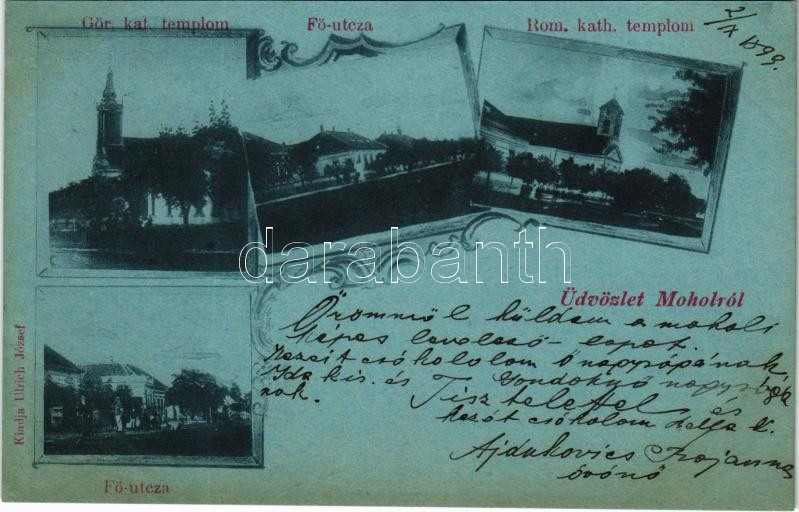 Gör. kat. templom
Fő-utcza
Rom. kath. templom
2/IX 1899.
darabanth
Üdvözlet Moholról
Örömmel küldem a moholi
képes levelező-lapot.
Kezeit csókololom ő nagyságának,
Ida kis. és
nak.
Tisztelettel és
kezét csókolom
Ajdukovics
óvónő
Kiadja Ulrich József
Fő-utcza